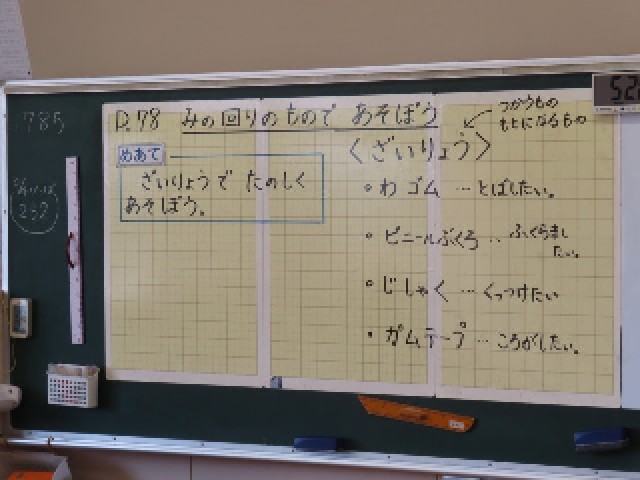 P.78 みの回りのもので あそぼう
めあて
ざいりょうで たのしく
あそぼう。
つかうもの
もとになるもの
〈ざいりょう〉
• わゴム … とばしたい。
• ビニールぶくろ … ふくらまし
たい。
• じしゃく … くっつけたい
• ガムテープ … ころがしたい。
785